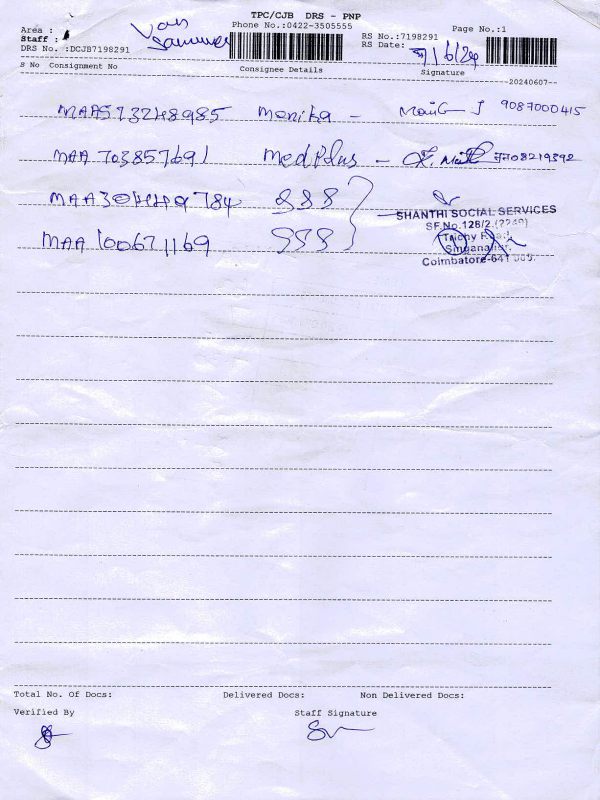 TPC/CJB DRS - PNP
Phone No.:0422-3505555
Page No.:1
Area :
Staff :
Van
RS No.:7198291
RS Date: 7/6/24
DRS No. :DCJB7198291
S No Consignment No Consignee Details Signature
--20240607--
MAA573248985 Monika - 9087000415
MAA703857691 Medplus -
MAA 784 SSS
MAA100671169 SSS
SHANTHI SOCIAL SERVICES
SF.No.128/2,
Trichy Road,
Coimbatore-641
Total No. Of Docs: Delivered Docs: Non Delivered Docs:
Verified By Staff Signature